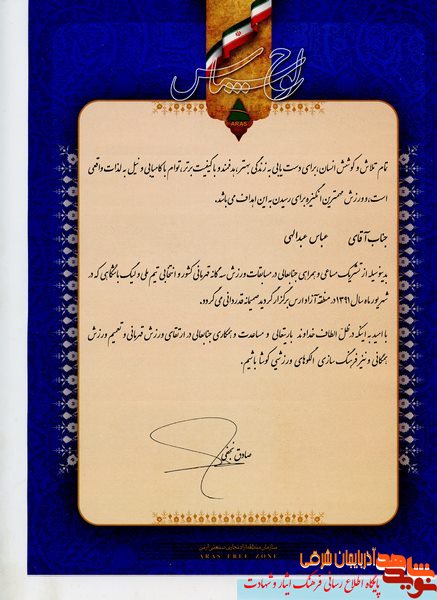 لوح سپاس
ARAS
تمام تلاش و کوشش انسان، برای دست یابی به زندگی بهتر، هدفمند و باکیفیت برتر، توام با کامیابی و نیل به لذات واقعی
است، و ورزش مهمترین انگیزه برای رسیدن به این اهداف می باشد.
جناب آقای عباس عبدالهی
بدینوسیله از تشریک مساعی و همراهی جنابعالی در مسابقات ورزش سه گانه قهرمانی کشور و انتخابی تیم ملی و لیگ باشگاهی که در
شهریور ماه سال ۱۳۹۱ در منطقه آزاد ارس برگزار گردید صمیمانه قدردانی می گردد.
با امید به اینکه در ظل الطاف خداوند باریتعالی و مساعدت و همکاری جنابعالی در ارتقای ورزش قهرمانی و تعمیم ورزش
همگانی و نیز فرهنگ سازی الگوهای ورزشی کوشا باشیم.
صادق نجفی
سازمان منطقه آزاد تجاری صنعتی ارس
ARAS FREE ZONE
نوید شاهد آذربایجان شرقی
پایگاه اطلاع رسانی فرهنگ ایثار و شهادت